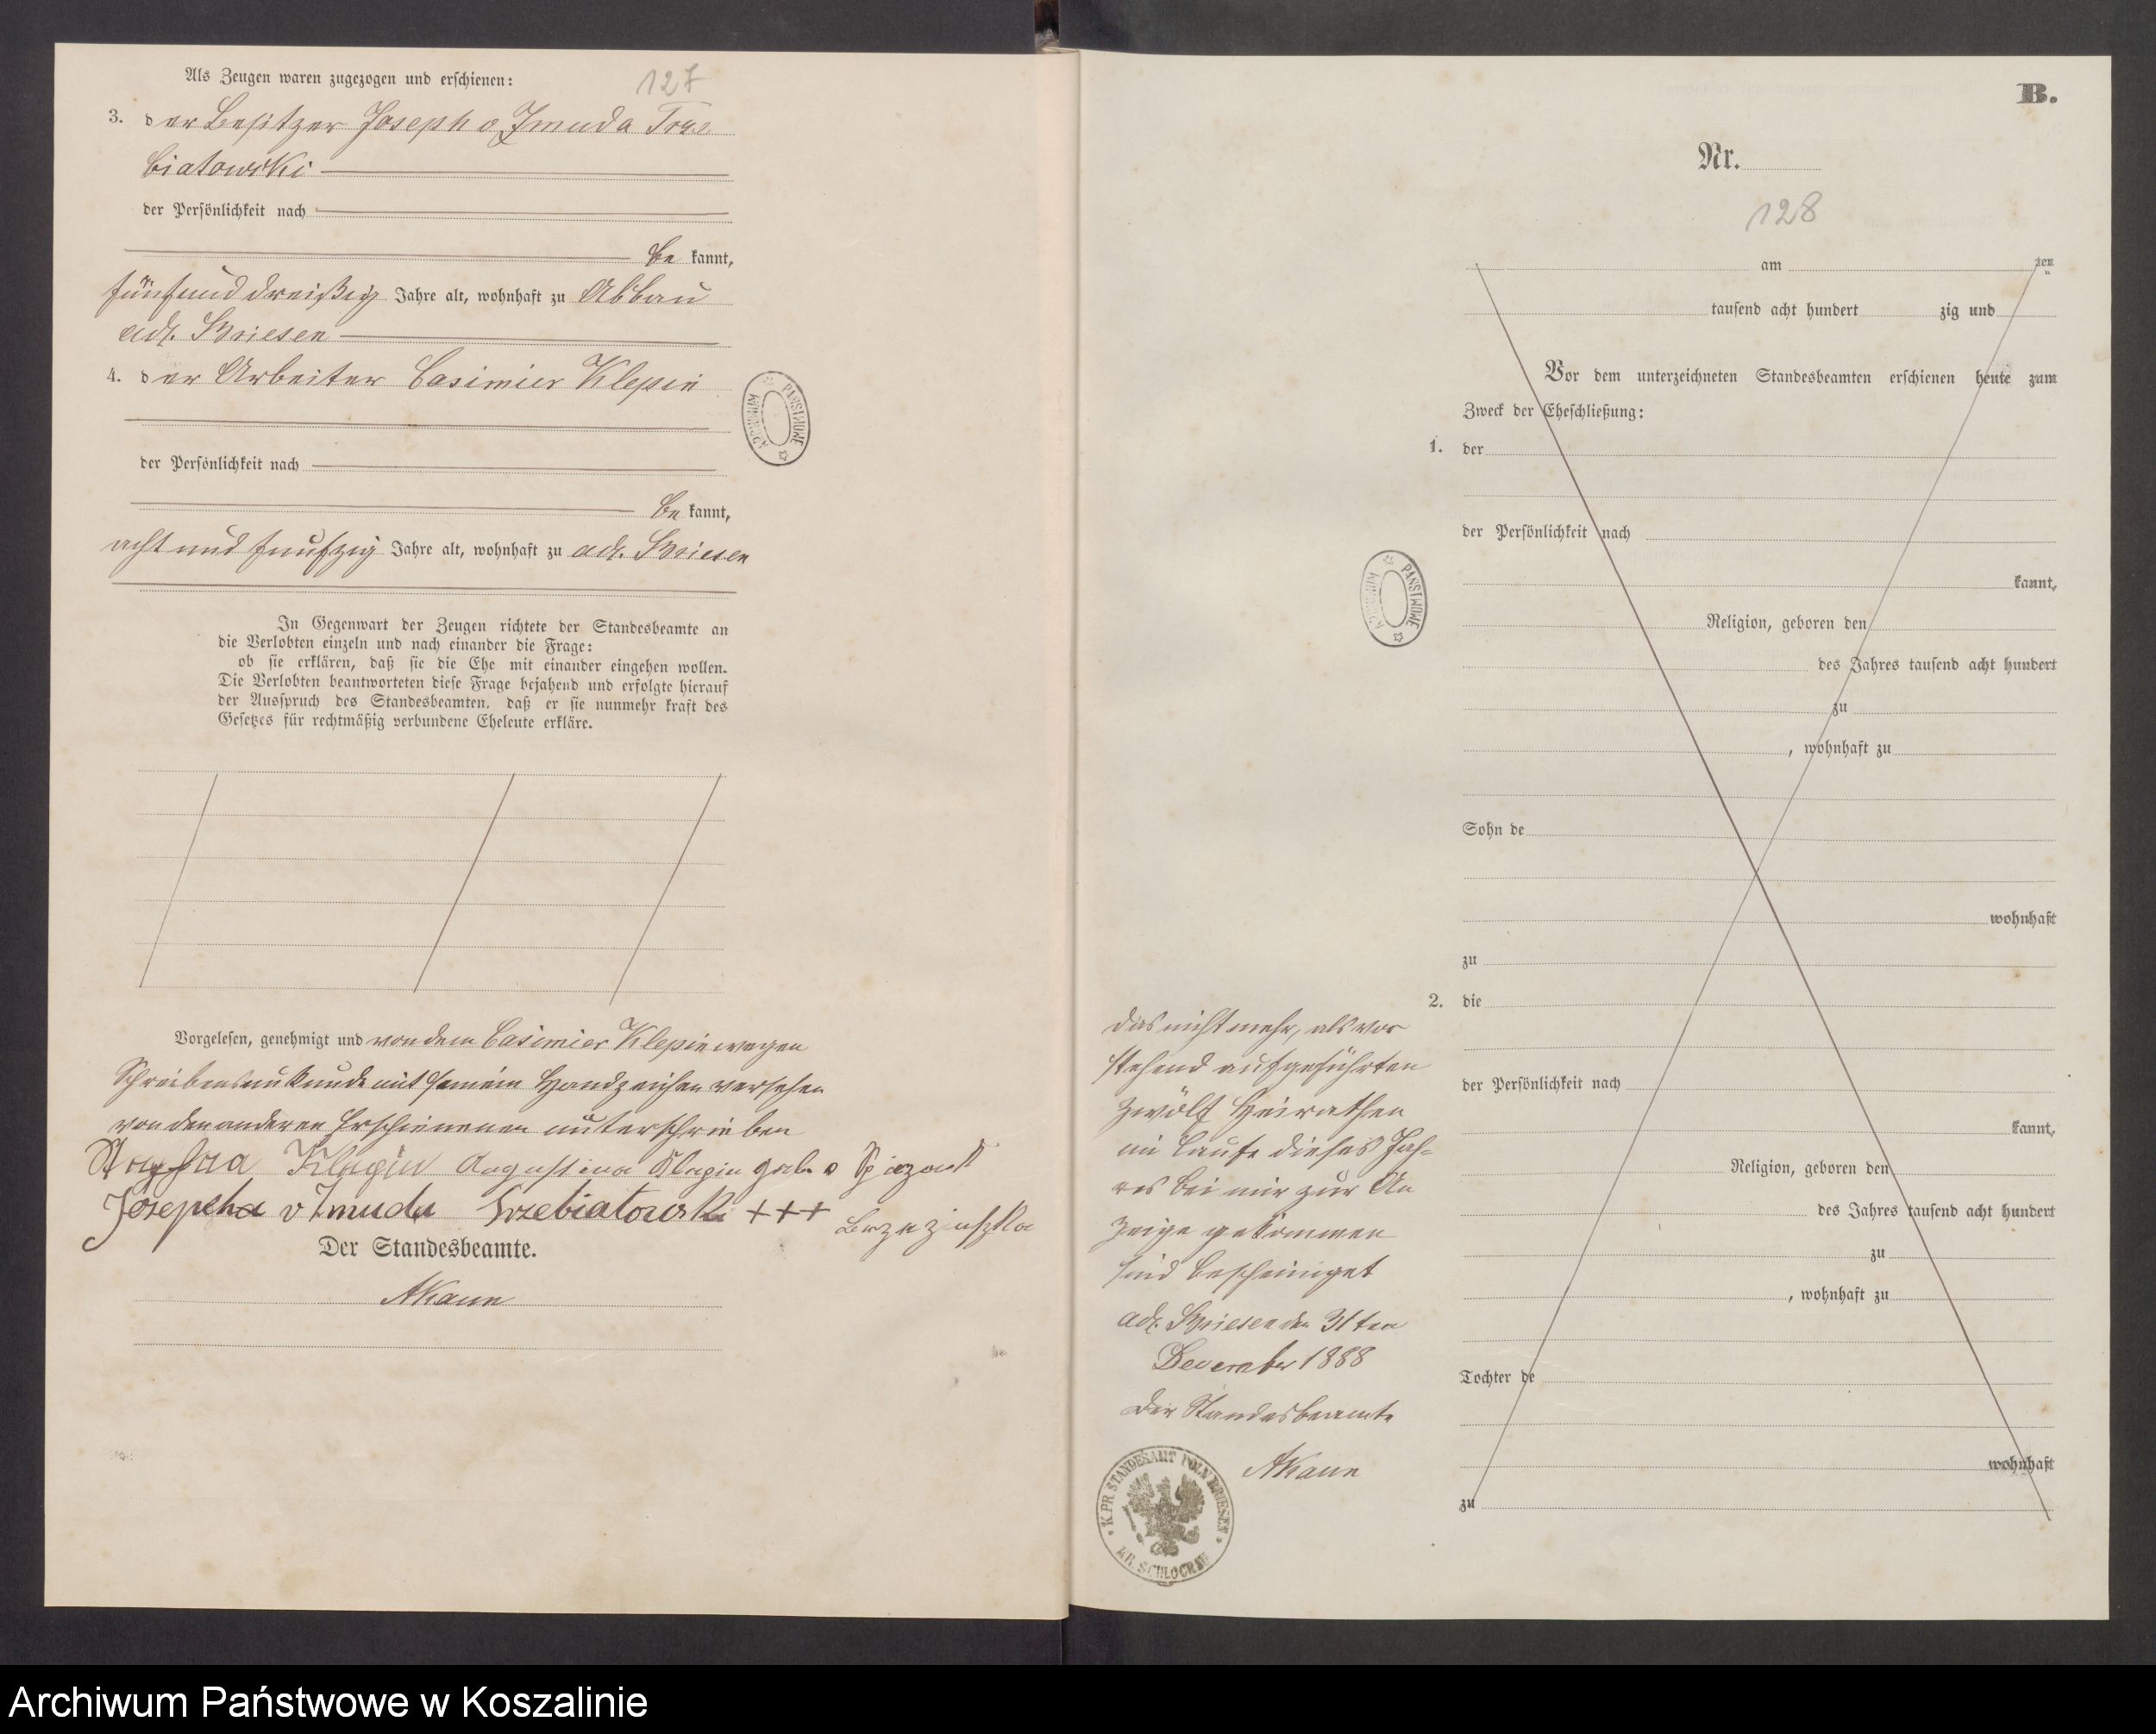 Als Zeugen waren zugezogen und erschienen:
127
3. der Besitzer Joseph v Zmuda Trze
biatowski
der Persönlichkeit nach
be kannt,
fünfund dreißig Jahre alt, wohnhaft zu Abbau
adl. Briesen
4. der Arbeiter Casimier Klepin
der Persönlichkeit nach
be kannt,
acht und funfzig Jahre alt, wohnhaft zu adl. Briesen
In Gegenwart der Zeugen richtete der Standesbeamte an
die Verlobten einzeln und nach einander die Frage:
ob sie erklären, daß sie die Ehe mit einander eingehen wollen.
Die Verlobten beantworteten diese Frage bejahend und erfolgte hierauf
der Ausspruch des Standesbeamten, daß er sie nunmehr kraft des
Gesetzes für rechtmäßig verbundene Eheleute erkläre.
Vorgelesen, genehmigt und von dem Casimier Klepin wegen
Schreibensunkunde mit seinem Handzeichen versehen
von den anderen Erschienenen unterschrieben
Klepin Augustina Klepin geb. v
Josepeha v Zmuda Trzebiatowski +++
Der Standesbeamte.
AKaun
ARCHIWUM PAŃSTWOWE
B.
Nr.
128
am ten
tausend acht hundert zig und
Vor dem unterzeichneten Standesbeamten erschienen heute zum
Zweck der Eheschließung:
1. der
der Persönlichkeit nach
kannt,
Religion, geboren den
des Jahres tausend acht hundert
zu
, wohnhaft zu
Sohn de
wohnhaft
zu
2. die
der Persönlichkeit nach
kannt,
Religion, geboren den
des Jahres tausend acht hundert
zu
, wohnhaft zu
Tochter de
wohnhaft
zu
Das nicht mehr, als vor
stehend aufgeführten
zwölf Heirathen
im Laufe dieses Jah-
res bei mir zur An
zeige gekommen
sind bescheiniget
adl. Briesen den 31ten
December 1888
Der Standesbeamte
AKaun
K. PR. STANDESAMT POLN BRIESEN
KR. SCHLOCHAU
ARCHIWUM PAŃSTWOWE
Archiwum Państwowe w Koszalinie